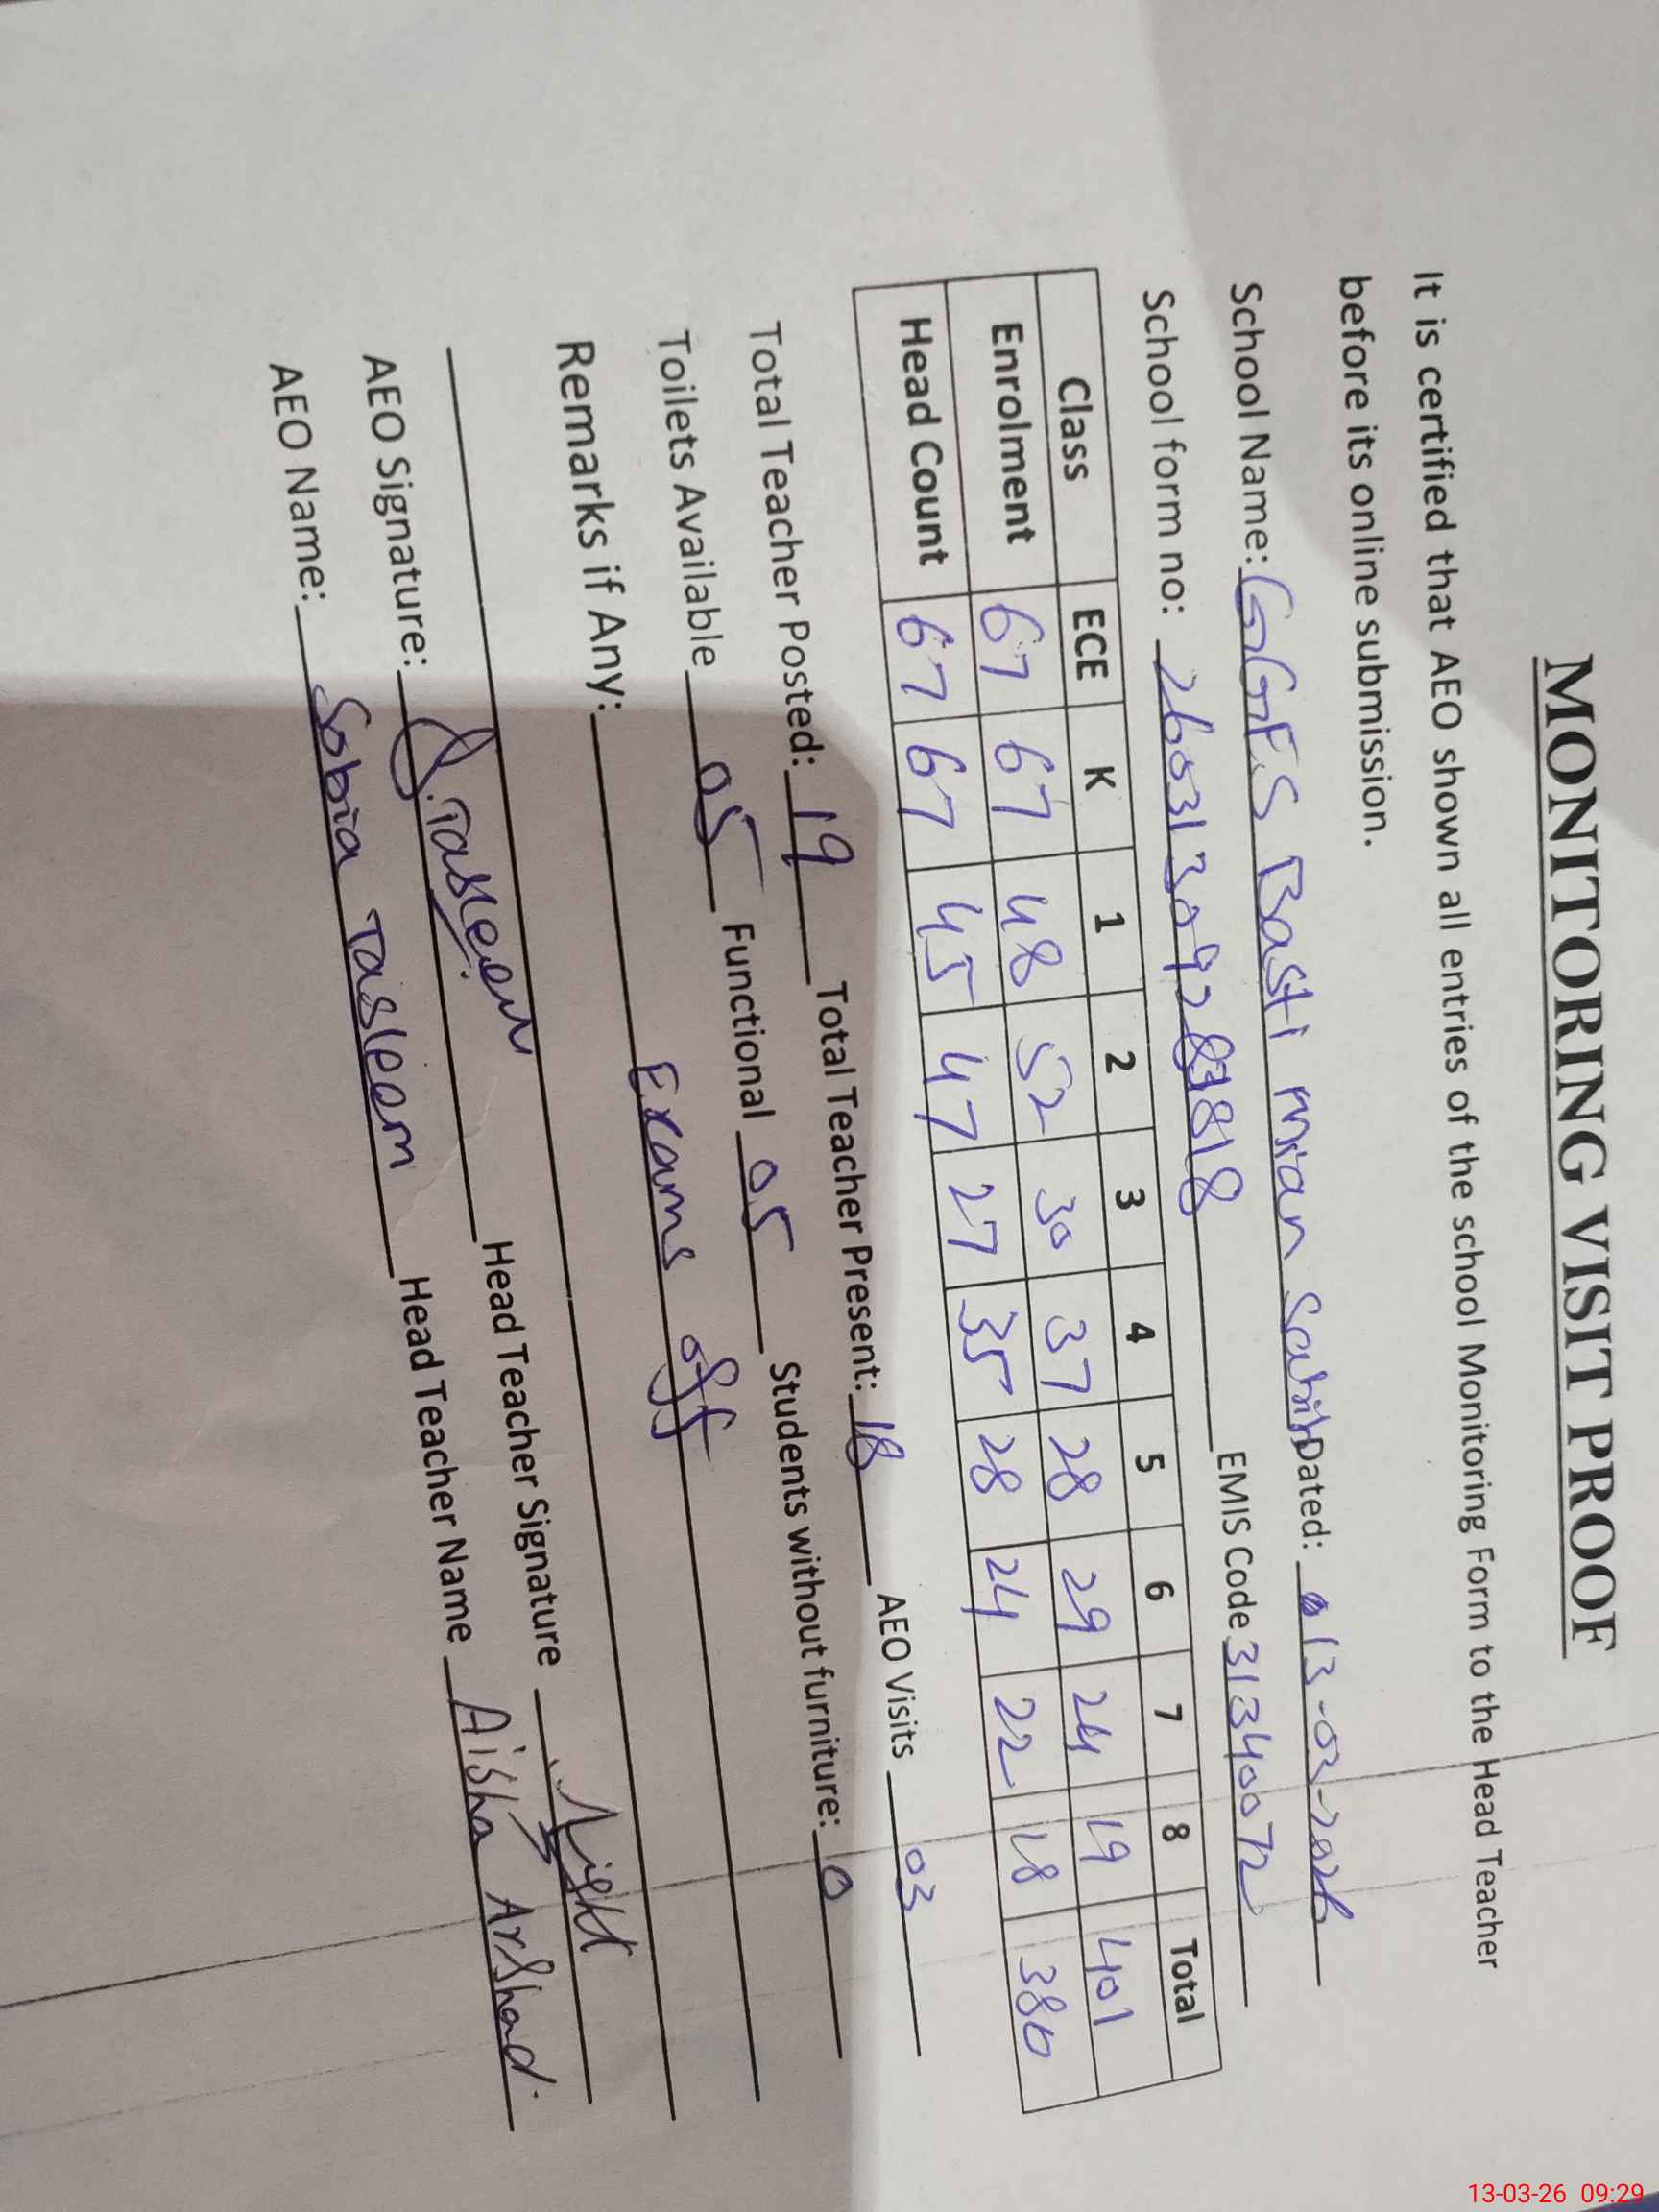 MONITORING VISIT PROOF
It is certified that AEO shown all entries of the school Monitoring Form to the Head Teacher
before its online submission.
School Name: GGES Basti mian Sahib Dated: 13-03-2026
School form no: EMIS Code 31340072
Class ECE K 1 2 3 4 5 6 7 8 Total
Enrolment 67 67 48 52 30 37 28 29 24 19 401
Head Count 67 67 45 47 27 35 28 24 22 18 380
Total Teacher Posted: 19 Total Teacher Present: 18 AEO Visits 03
Toilets Available 05 Functional 05 Students without furniture: 0
Remarks if Any: Exams off
AEO Signature: S.Tasleem Head Teacher Signature
AEO Name: Sobia Tasleem Head Teacher Name Aisha Arshad.
13-03-26 09:29